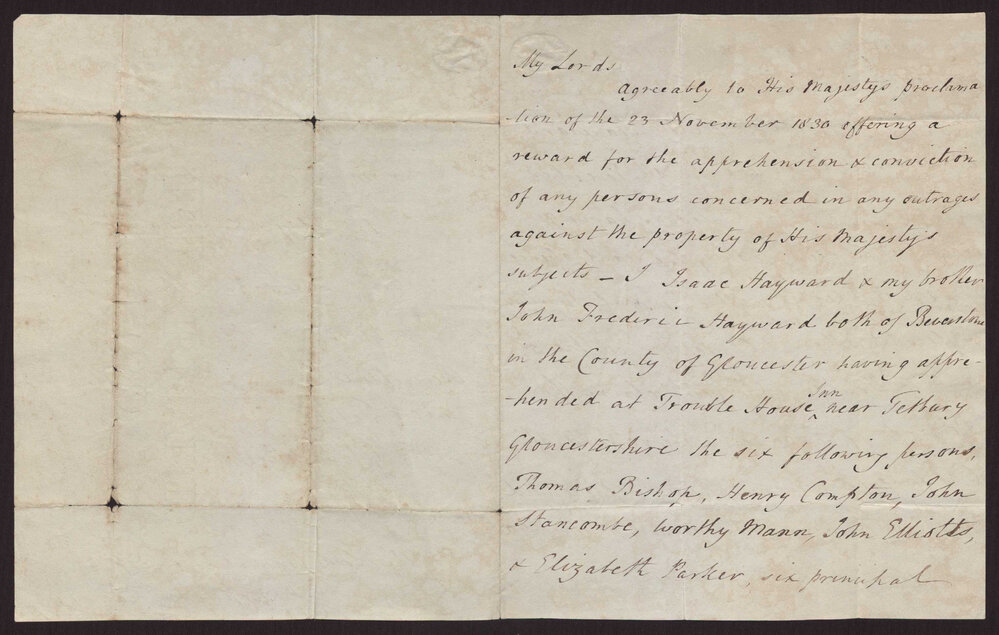 My Lords
agreeably to His Majestys proclima
tion of the 23 November 1830 offering a
reward for the apprehension & conviction
of any persons concerned in any outrages
against the property of His Majestys
subjects – I Isaac Hayward & my brother
John Frederic Hayward both of Beverstone
in the County of Gloucester having appre-
-hended at Trouble House Inn near Tetbury
Gloucestershire the six following persons,
Thomas Bishop, Henry Compton, John
Stancombe, Worthy Mann, John Elliotts,
& Elizabeth Parker, six principal